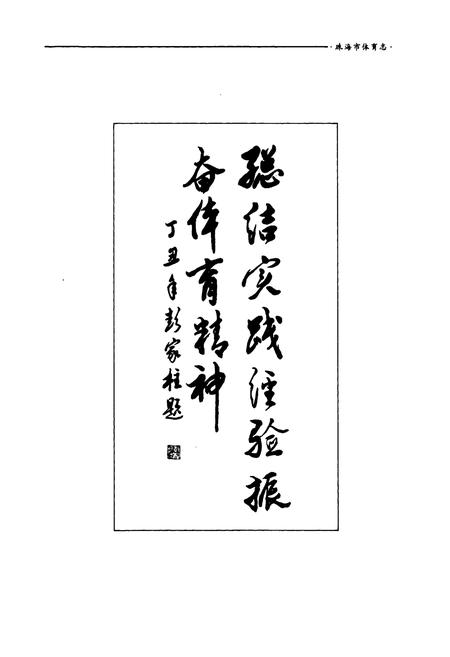 ·珠海市体育志·
總结实践经验振
奋体育精神
丁丑年彭家柱题